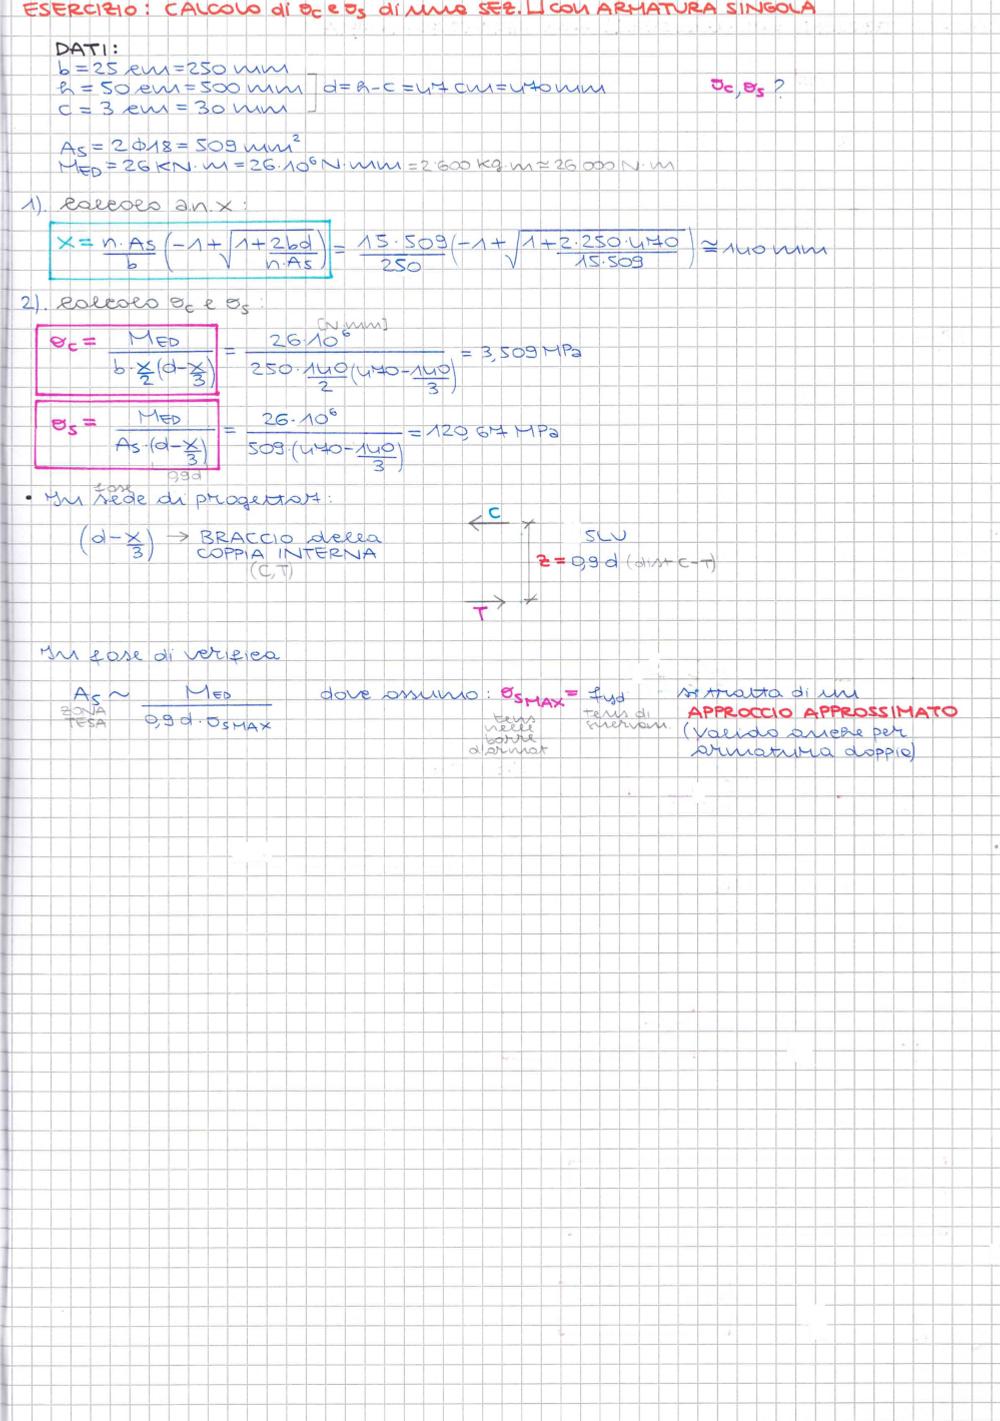 ESERCIZIO: CALCOLO di σc e σs di una SEZ. ⊔ CON ARMATURA SINGOLA
DATI:
b = 25 cm = 250 mm
h = 50 cm = 500 mm d = h - c = 47 cm = 470 mm σc, σs ?
c = 3 cm = 30 mm
As = 2Φ18 = 509 mm²
MED = 26 KN·m = 26·10⁶ N·mm = 2'600 kg·m ≃ 26 000 N·m
1). Calcolo a.n. x:
x = n·As/b (-1+√(1+2bd/n·As)) = 15·509/250 (-1+√(1+2·250·470/15·509)) ≅ 140 mm
2). Calcolo σc e σs:
[N·mm]
σc = MED/(b·x/2(d-x/3)) = 26·10⁶/(250·140/2(470-140/3)) = 3,509 MPa
σs = MED/(As·(d-x/3)) = 26·10⁶/(509·(470-140/3)) = 120,67 MPa
0,9d
fase
• In sede di progettaz:
(d-x/3) → BRACCIO della
COPPIA INTERNA
(C,T)
C
SLU
z = 0,9 d (dist C-T)
T
In fase di verifica
As ~ MED/(0,9 d·σsMAX) dove assumo: σsMAX = fyd si tratta di un
ZONA TESA
tens nelle barre d'armat
tens di snervam.
APPROCCIO APPROSSIMATO
(valido anche per
armatura doppia)